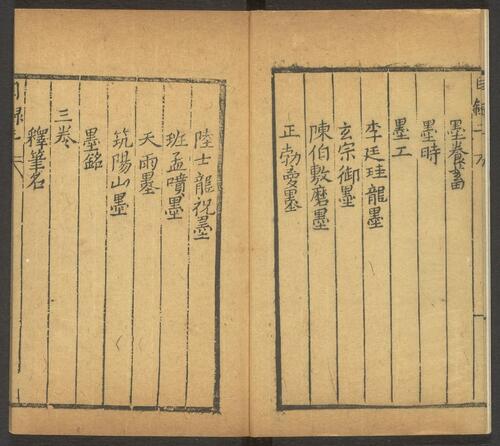 墨養畜
墨時
墨工
李廷珪龍墨
玄宗御墨
陳伯敷磨墨
王勃愛墨
陸士龍祝墨
班孟噴墨
天雨墨
筑陽山墨
墨銘
三卷
釋筆名